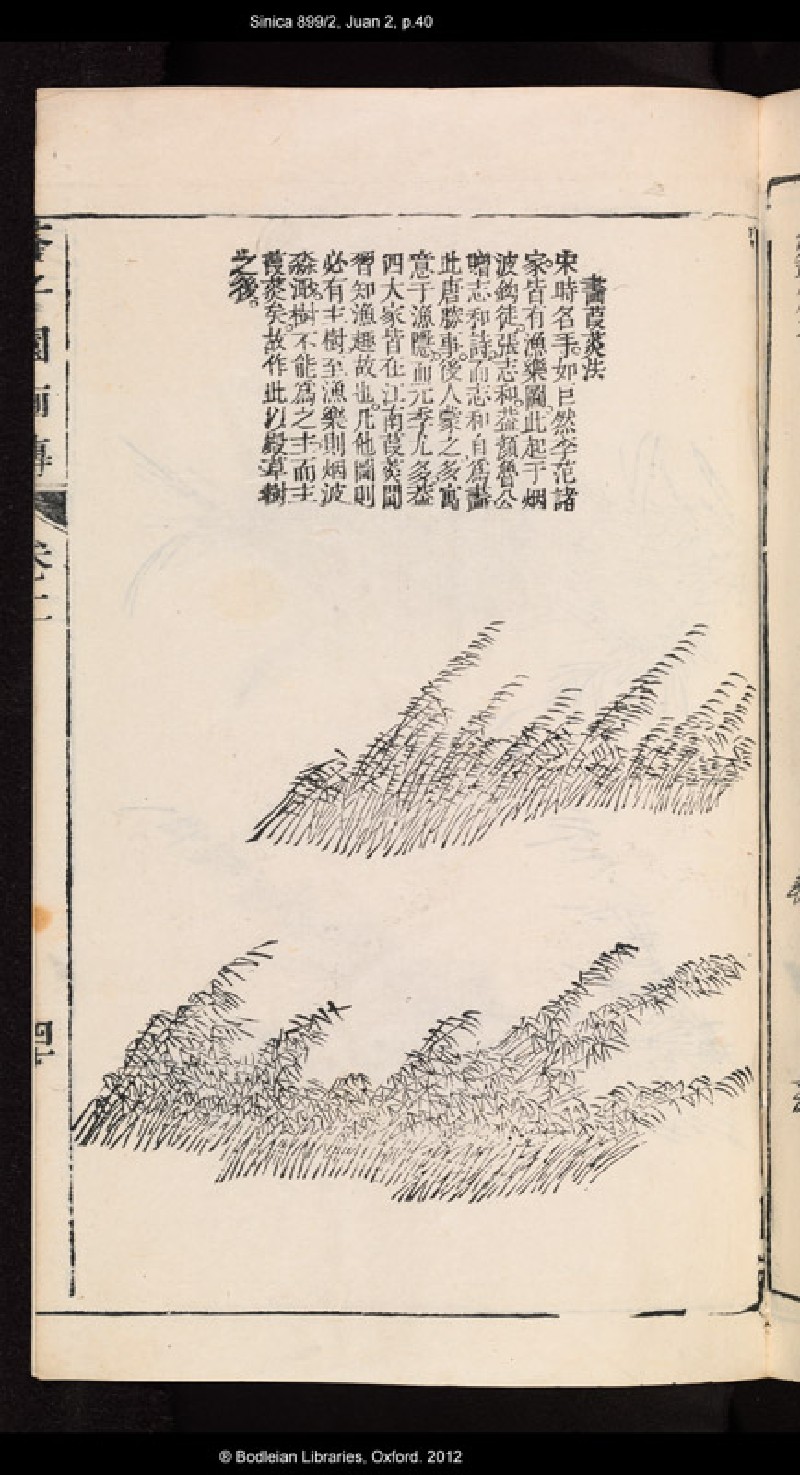 Sinica 899/2, Juan 2, p.40
畫葭菼法
宋時名手。如巨然李范諸
家。皆有漁樂圖。此起于烟
波釣徒。張志和。蓋顏魯公
贈志和詩。而志和自爲畫
此唐勝事。後人摹之。多寓
意于漁隱。而元季尤多。蓋
四大家皆在江南葭菼間
習知漁趣故也。凡他圖則
必有主樹。至漁樂則烟波
淼瀰。樹不能爲之主。而主
葭菼矣。故作此以殿草樹
之後。
芥子園畫傳
卷二
四十
® Bodleian Libraries, Oxford. 2012